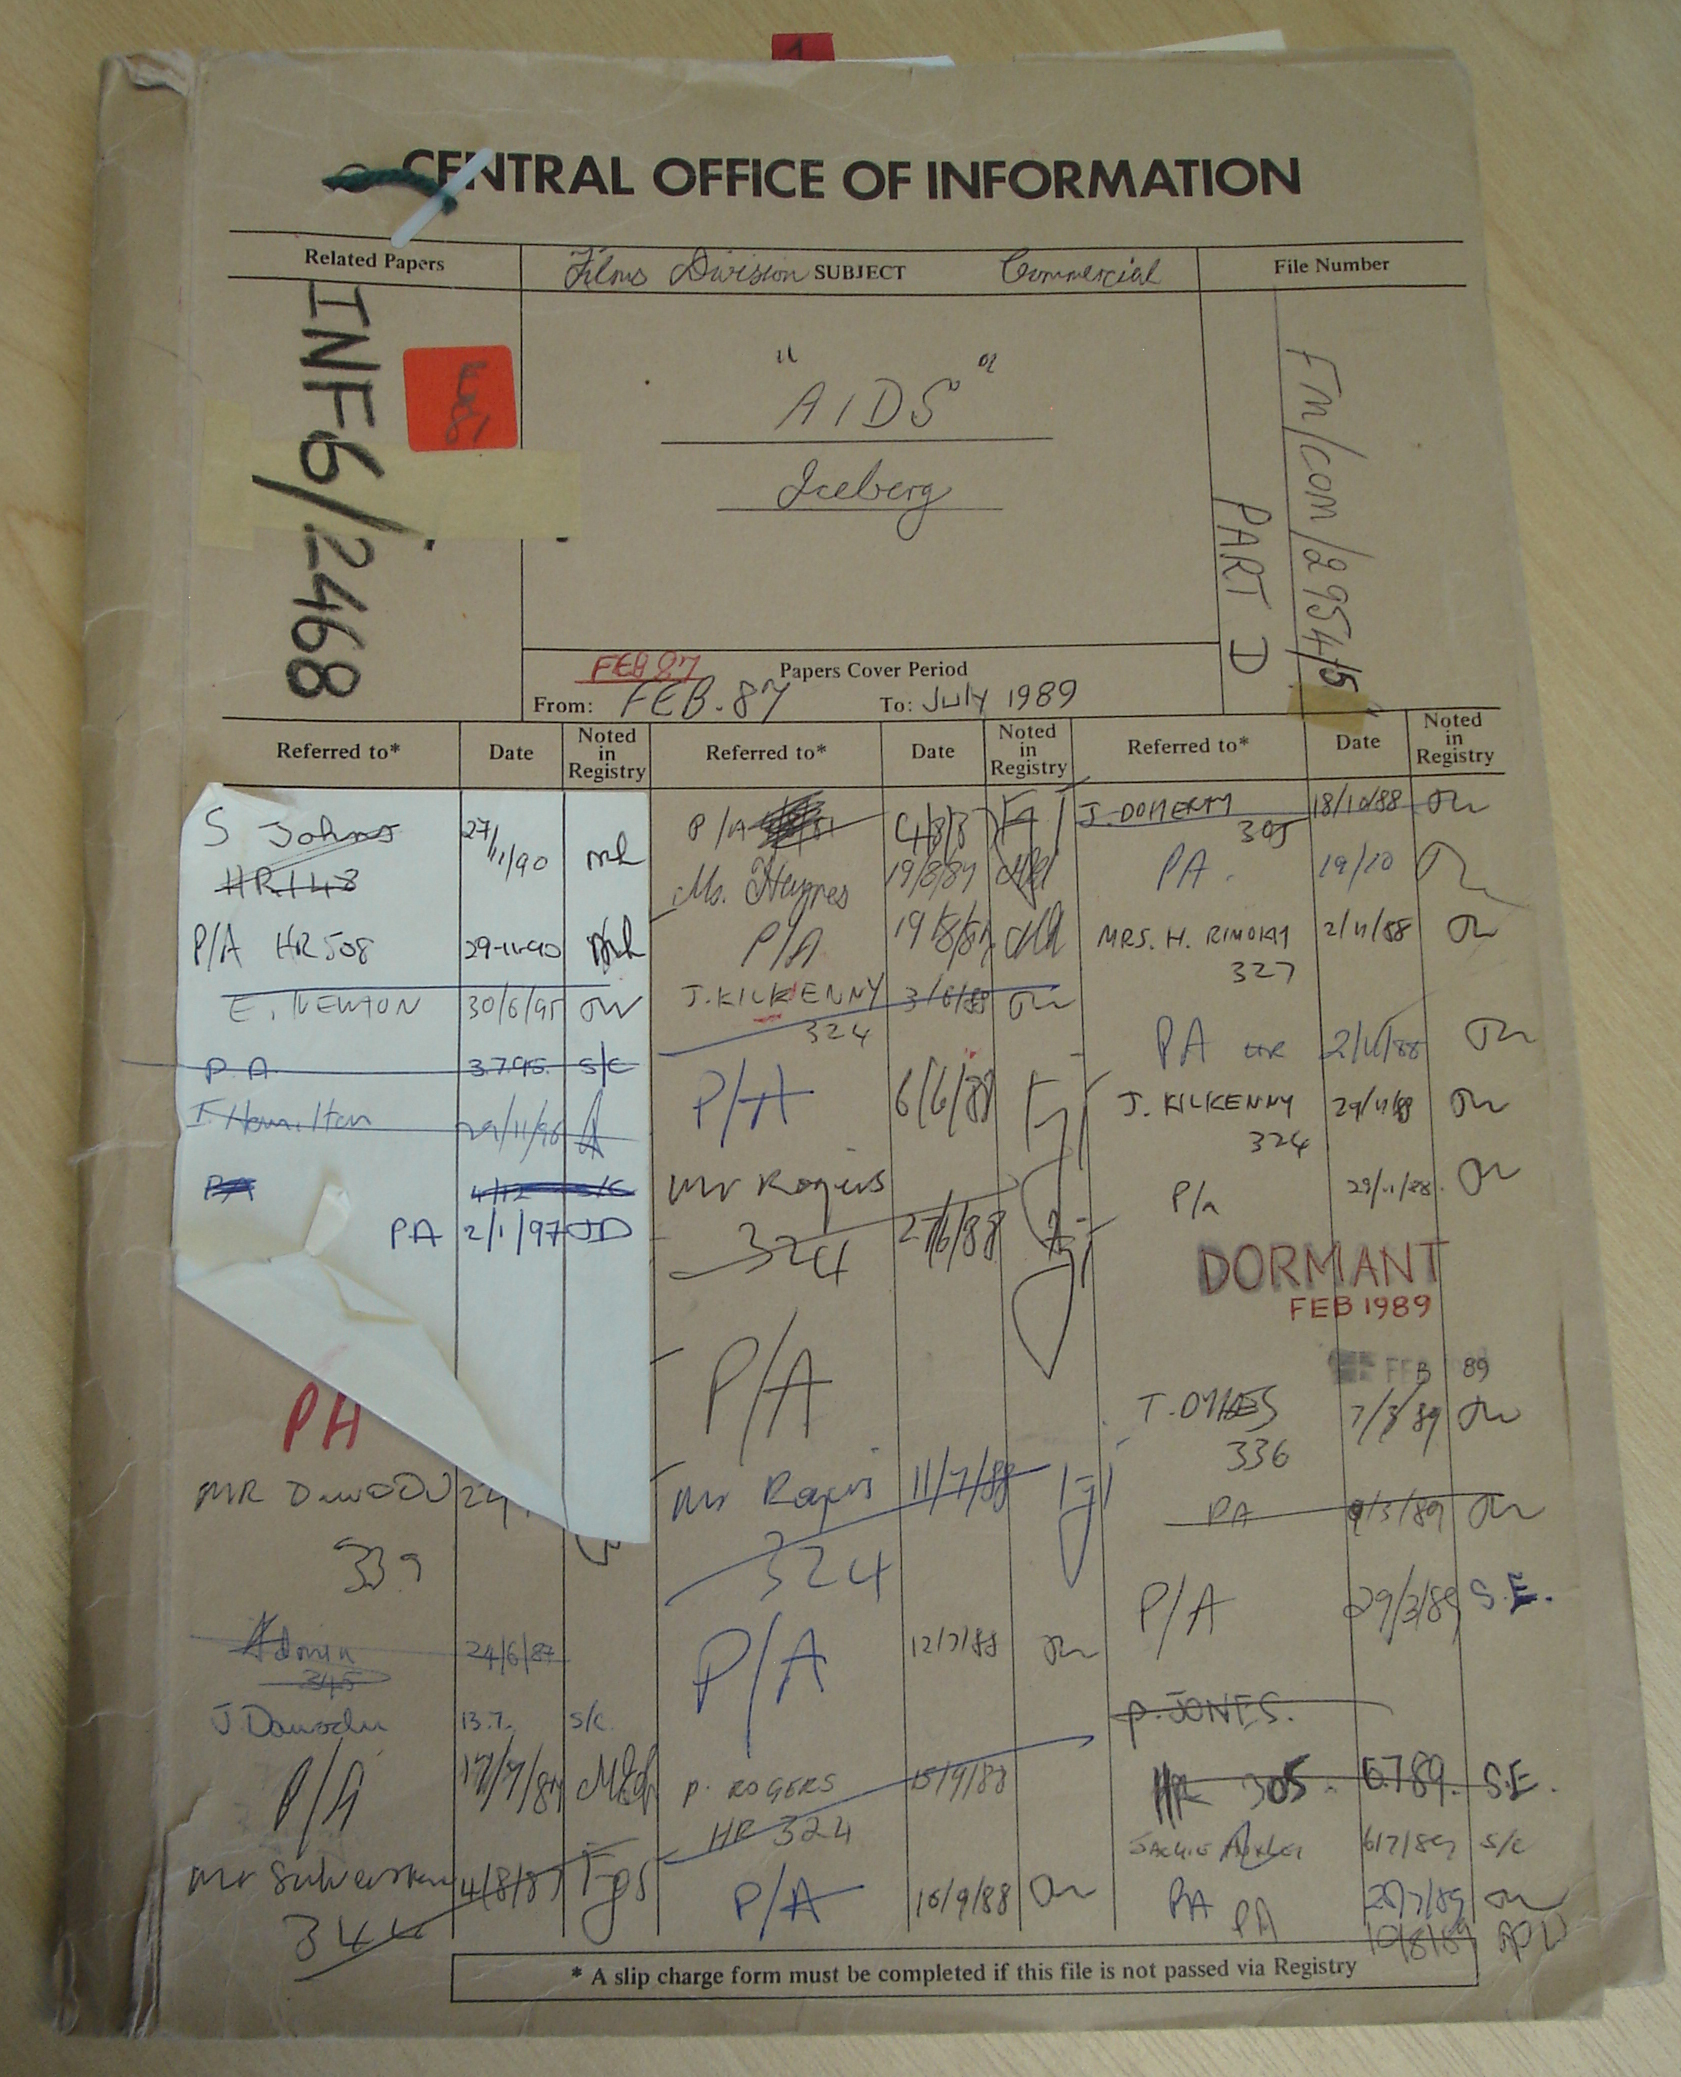 1
CENTRAL OFFICE OF INFORMATION
Related Papers
Films Division SUBJECT Commercial
File Number
INF6/2468
"AIDS"
Iceberg
FM/COM/2954/5
PART D
FEB 87
Papers Cover Period
From: FEB. 87 To: July 1989
Referred to* Date Noted in Registry Referred to* Date Noted in Registry Referred to* Date Noted in Registry
S Johns 27/11/90
HR148
P/A HR508 29-11-90
E. NEWTON 30/6/95
PA 3.7.95. S/C
Hamilton 29/11/96
PA 4/12 S/C
PA 2/1/97 JD
PA
MR DAWODU
339
Admin 24/6/87
345
J Dawodu 13.7. S/C.
P/A 17/7/87
Mr 4/8/87
344
P/A
Ms. Haynes 19/8/87
P/A 19/8/87
J. KILKENNY 3/6/88
324
P/A 6/6/88
Mr Rogers
324 27/6/88
P/A
Mr Rogers 11/7/88
324
P/A 12/7/88
P. ROGERS 15/9/88
HR 324
P/A 16/9/88
J. DOHERTY 18/10/88
305
PA. 19/10
MRS. H. 2/11/88
327
PA HR 2/11/88
J. KILKENNY 29/11/88
324
P/A 29/11/88.
DORMANT
FEB 1989
FEB 89
T. 7/3/89
336
PA 9/3/89
P/A 29/3/89 S.E.
P. JONES.
HR 305. 6.7.89. S.E.
JACKIE 6/7/89 S/C
PA 28/7/89
PA 10/8/89
* A slip charge form must be completed if this file is not passed via Registry